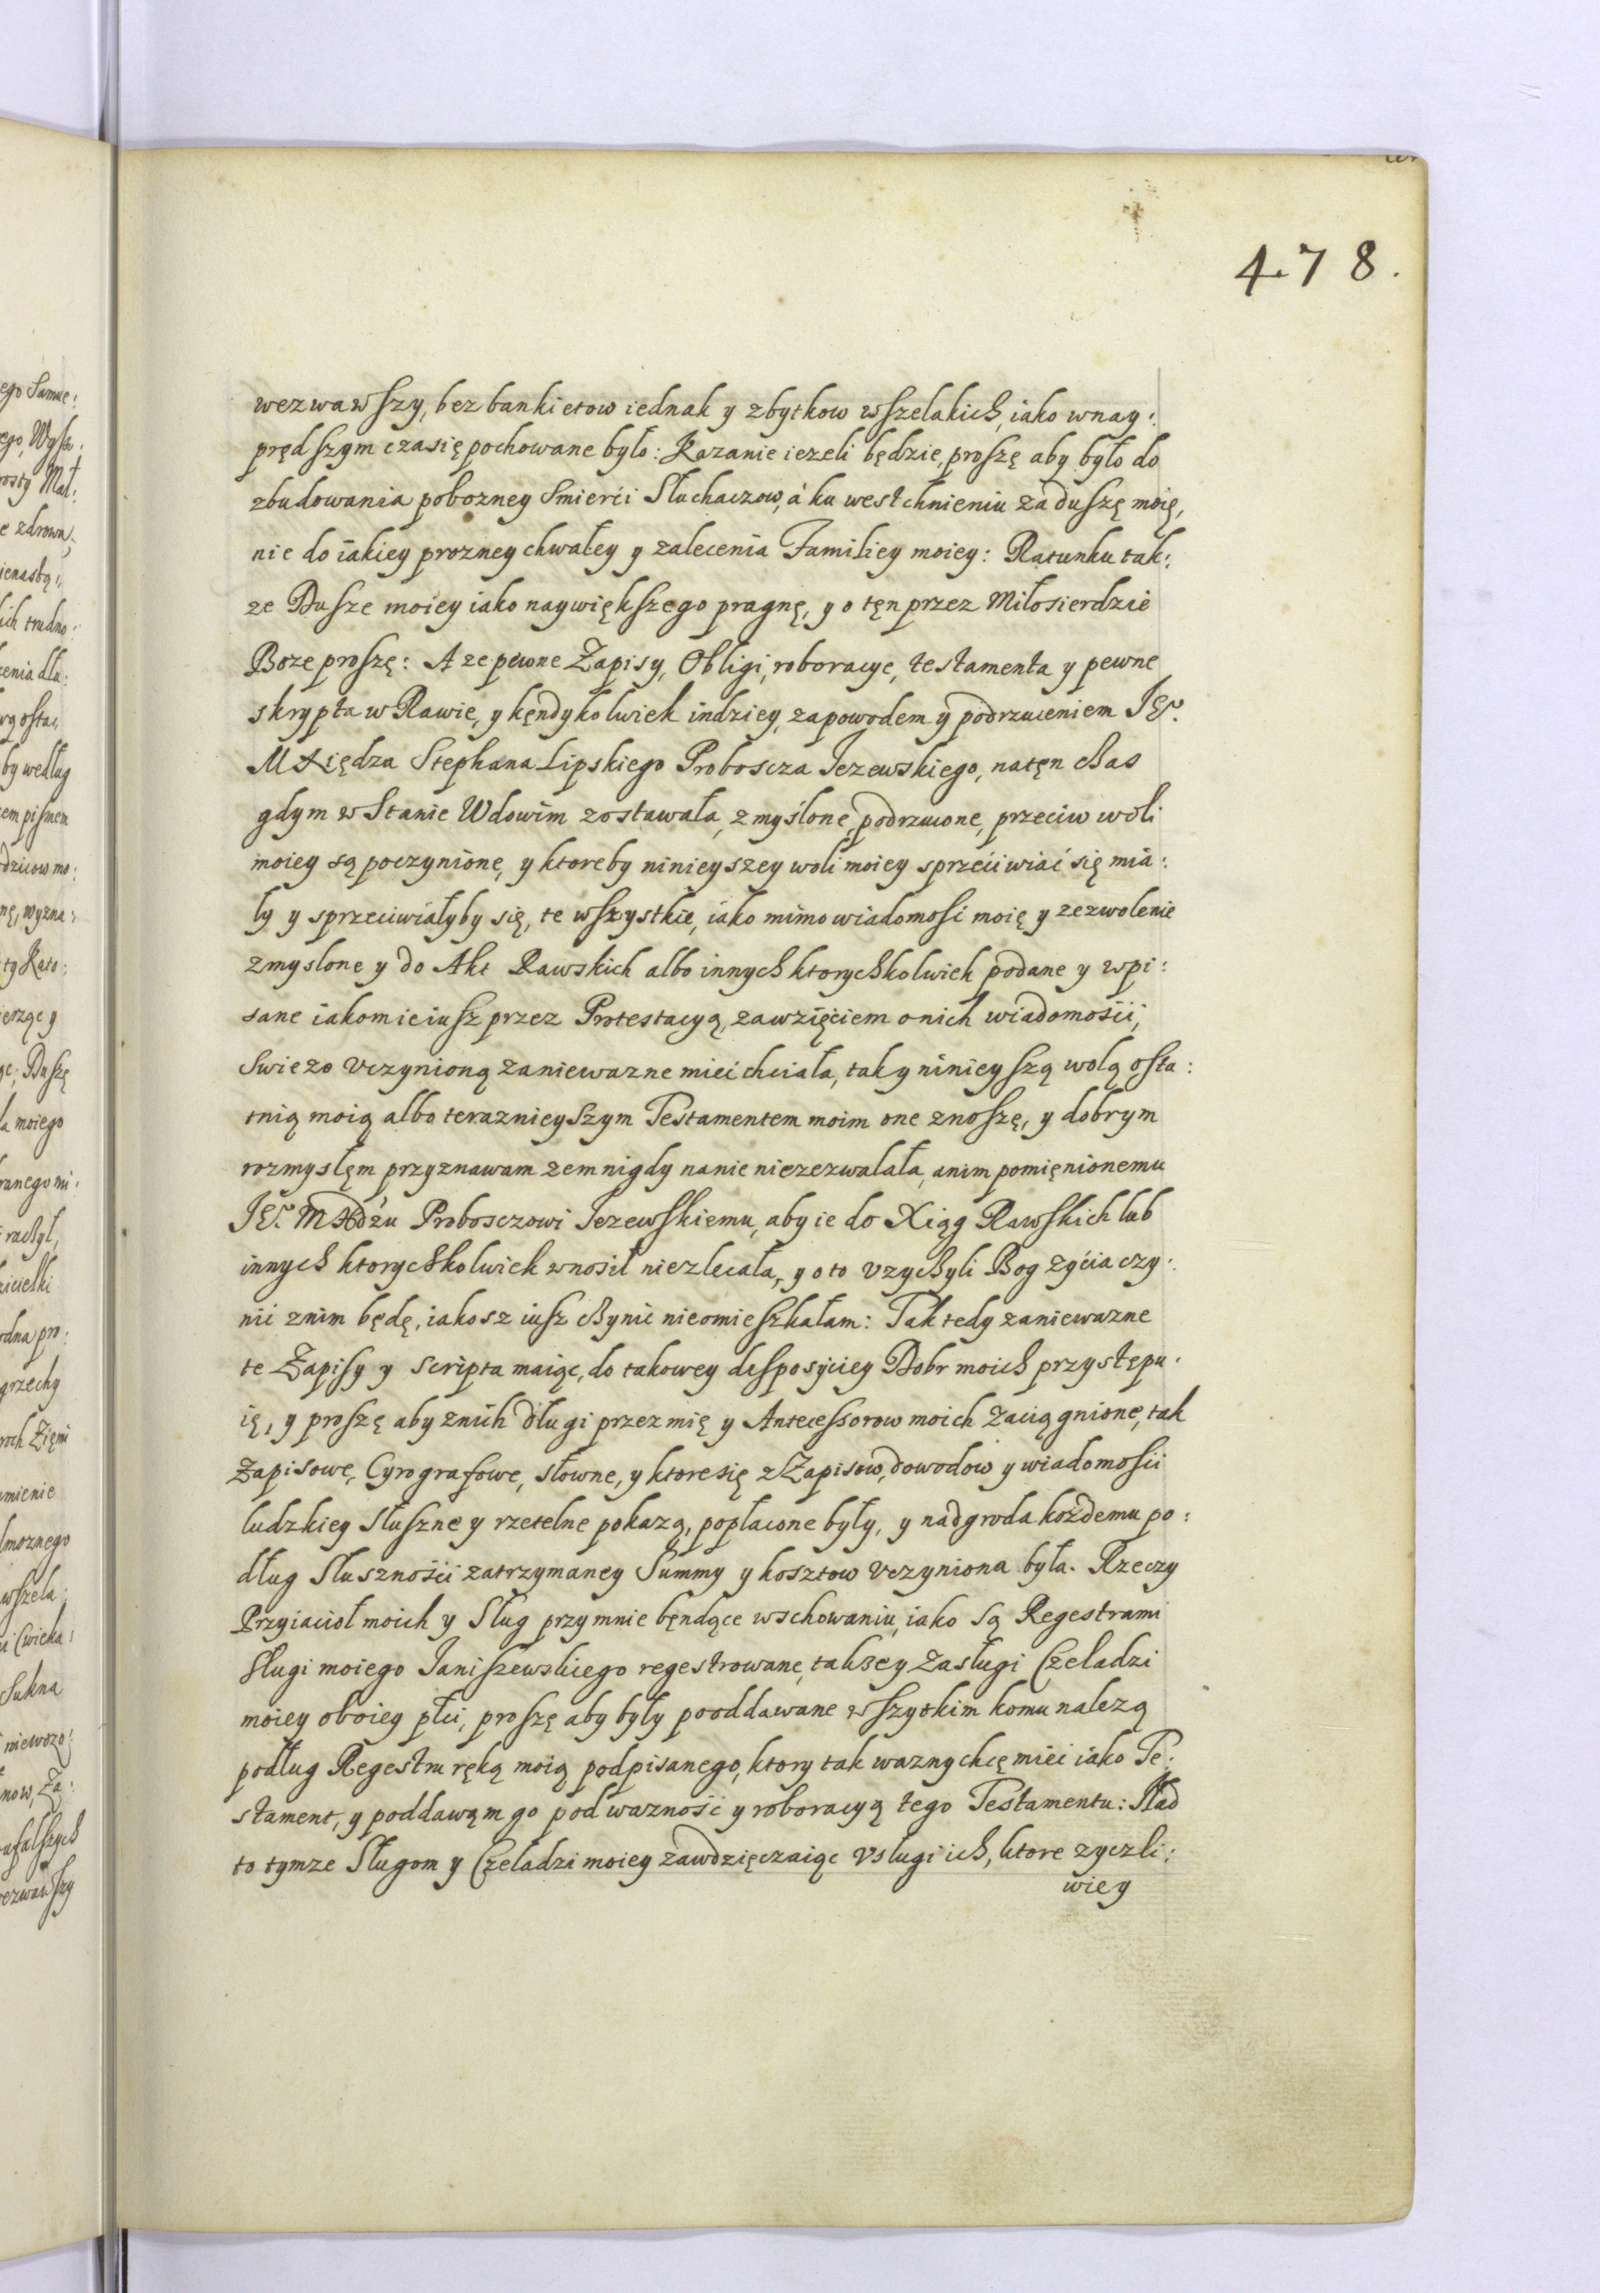 478.
wezwawszy, bez bankietow iednak y zbytkow wszelakich, iako wnay:
prędszym czasię pochowane było: Kazanie iezeli będzie, proszę aby było do
zbudowania pobozney Smierći Słuchaczow, á ku westchnieniu za duszę moię,
nie do iakiey prozney chwałey y zalecenia Familiey moiey: Ratunku tak:
ze Dusze moiey iako naywiększego pragnę, y o tęn przez Miłosierdzie
Boze proszę: A ze pewne Zapisy, Obligi, roboracye, testamenta y pewne
skrypta w Rawie, y kęndykolwiek indziey, za powodem y podrzuceniem
Stephana Lipskiego Proboscza Iezewskiego, natęn czas
gdym w Stanie Wdowim zostawała, zmyślone, podrzucone, przeciw woli
moiey są poczynione, y ktoreby ninieyszey woli moiey sprzeciwiać się mia:
ły y sprzeciwiałyby się, te wszystkie, iako mimo wiadomośi moię y zezwolenie
zmyslone y do Akt Rawskich albo innych ktorychkolwiek podane y wpi:
sane iakom ie iusz przez Protestacyą, za wzięciem o nich wiadomośii,
swiezo vczynioną za niewazne mieć chciała, tak y ninieyszą wolą osta:
tnią moią albo teraznieyszym Testamentem moim one znoszę, y dobrym
rozmysłęm przyznawam zem nigdy na nie niezezwalała, anim pomięnionemu
Proboszczowi Iezewskiemu, aby ie do Xiąg Rawskich lub
innych ktorychkolwiek wnosił niezlecała, y o to vzychyli Bog zyćia czy:
nić znim będę, iakosz iusz czynić nieomieszkałam: Tak tedy za niewazne
te Zapisy y Scripta maiąc, do takowey desposyciey Dobr moich przystępu:
ię, y proszę aby znich długi przez mię y Antecessorow moich zaciągnione, tak
Zapisowe, Cyrografowe, słowne, y ktore się z Zapisow, dowodow y wiadomosii
ludzkiey słuszne y rzetelne pokazą, popłacone były, y nadgroda kozdemu po:
dług Słusznośii zatrzymaney Summy y kosztow vczyniona była. Rzeczy
Przyiacioł moich y Sług przymnie bęndące wschowaniu, iako są Regestrami
Sługi moiego Taniszewskiego regestrowane, takze y Zasługi Czeladzi
moiey oboiey płci, proszę aby były pooddawane wszytkim komu nalezą
podług Regestru ręką moią podpisanego, ktory tak wazny chcę mieć iako Te:
stament, y poddawąm go pod waznosć y roboracyą tego Testamentu: Nad
to tymze Sługom y Czeladzi moiey zawdzięczaiąc vsługi ich, ktore zyczli:
wiey